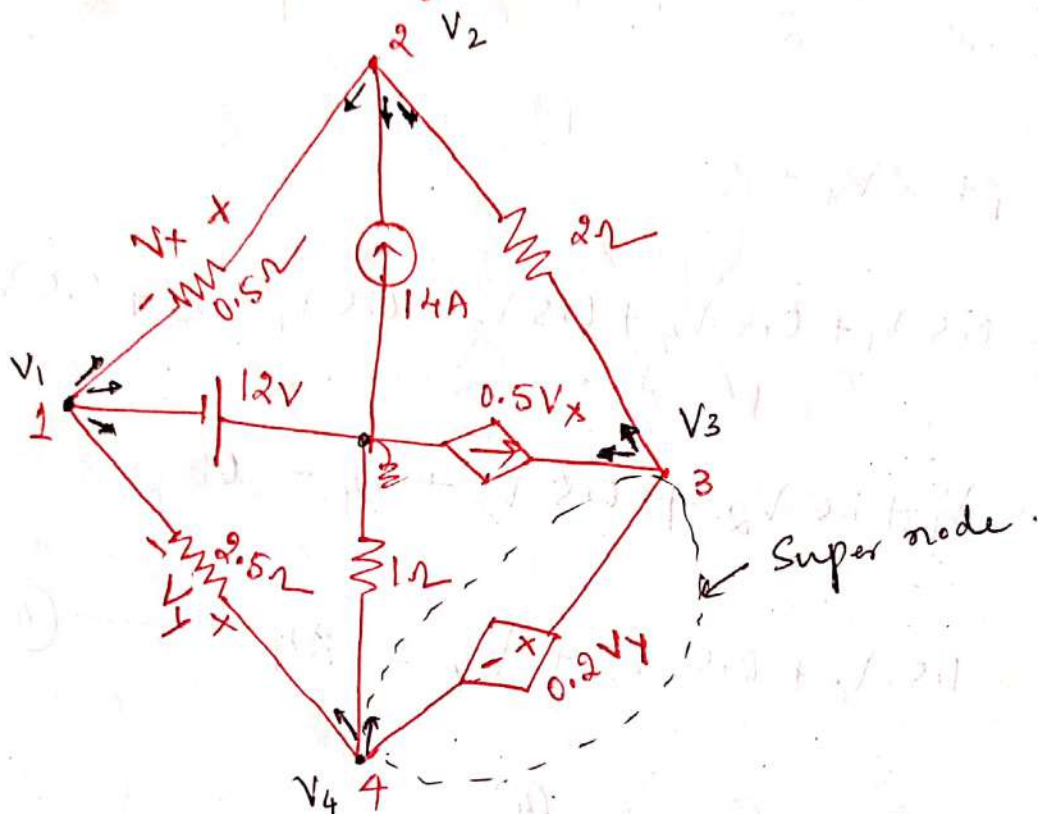 2 V2
Vx
- +
0.5Ω
14A
2Ω
V1
1
12V
0.5Vx
V3
3
Super node.
- 2.5Ω
Vy +
1Ω
- + 0.2Vy
V4 4